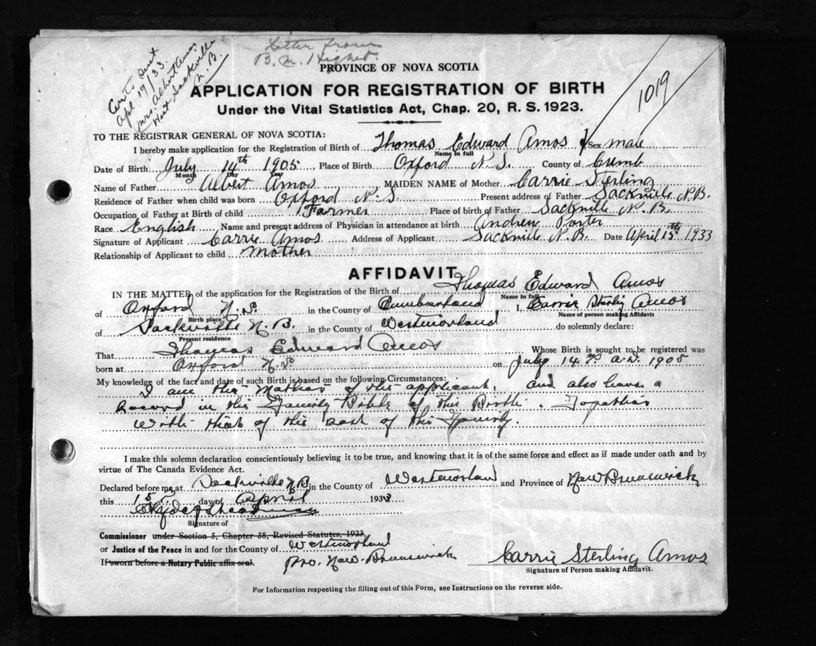 Letter from
B. N. Hight.
Certs Sent
Apl 19/33
Mrs Albert Amos
West Sackville
N.B.
1019
PROVINCE OF NOVA SCOTIA
APPLICATION FOR REGISTRATION OF BIRTH
Under the Vital Statistics Act, Chap. 20, R. S. 1923.
TO THE REGISTRAR GENERAL OF NOVA SCOTIA:
I hereby make application for the Registration of Birth of Thomas Edward Amos Sex male
Name in full
Date of Birth July 14th 1905 Place of Birth Oxford N.S. County of Cumb
Month Day Year
Name of Father Albert Amos MAIDEN NAME of Mother Carrie Sterling
Residence of Father when child was born Oxford N.S Present address of Father Sackville N.B.
Occupation of Father at Birth of child Farmer Place of birth of Father Sackville N.B.
Race English Name and present address of Physician in attendance at birth Andrew Porter
Signature of Applicant Carrie Amos Address of Applicant Sackville N.B. Date April 15th 1933
Relationship of Applicant to child Mother
AFFIDAVIT
IN THE MATTER of the application for the Registration of the Birth of Thomas Edward Amos
Name in full
of Oxford N.S. in the County of Cumberland I, Carrie Sterling Amos
Birth place Name of person making Affidavit
of Sackville N.B. in the County of Westmorland do solemnly declare:
Present residence
That Thomas Edward Amos Whose Birth is sought to be registered was
born at Oxford N.S on July 14th A.D. 1905
My knowledge of the fact and date of such Birth is based on the following Circumstances:
I am the Mother of the applicant. and also have a
Record in the Family Bible of this Birth. Together
with that of the rest of the Family.
I make this solemn declaration conscientiously believing it to be true, and knowing that it is of the same force and effect as if made under oath and by
virtue of The Canada Evidence Act.
Declared before me at Sackville N B in the County of Westmorland and Province of New Brunswick
this 15 day of April 1933
Signature of
Commissioner under Section 5, Chapter 38, Revised Statutes, 1923
or Justice of the Peace in and for the County of Westmorland
If sworn before a Notary Public affix seal. Pro. New-Brunswick
Carrie Sterling Amos
Signature of Person making Affidavit.
For Information respecting the filling out of this Form, see Instructions on the reverse side.